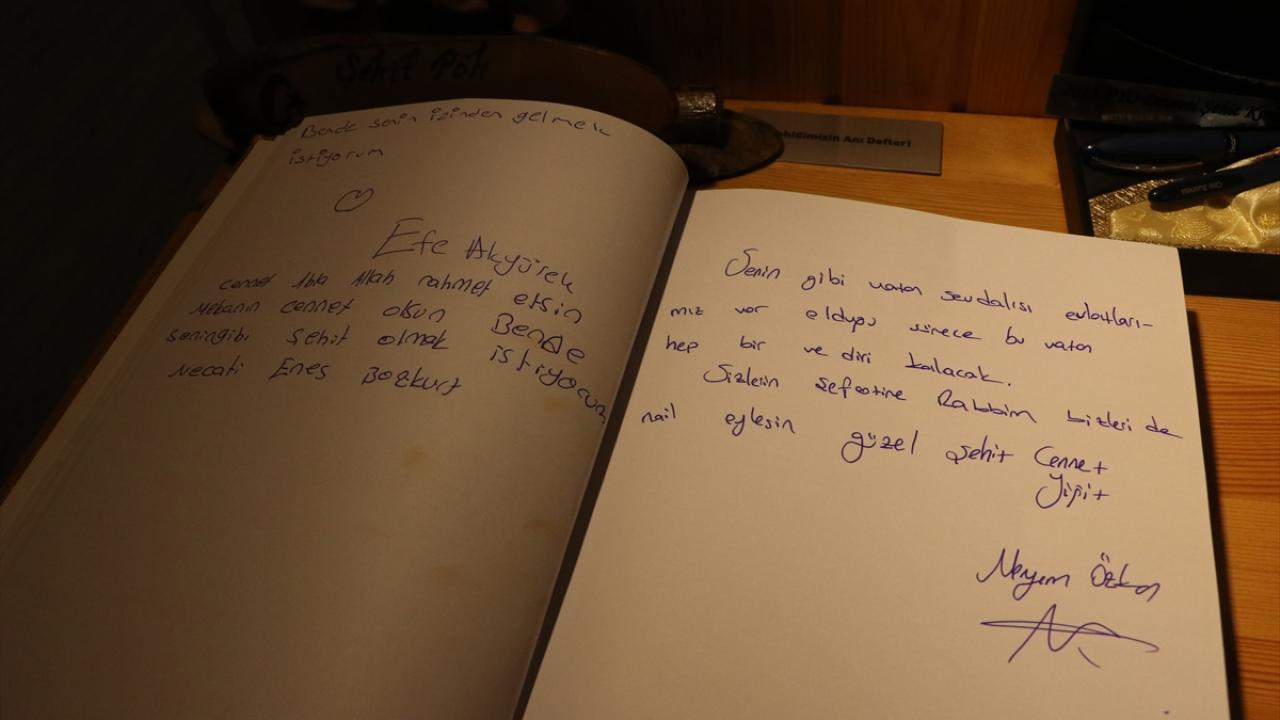 Şehit Pöh
Bende senin izinden gelmek
istiyorum
Efe Akyürek
cennet Abla Allah rahmet etsin
Mekanın cennet olsun Bende
senin gibi Şehit olmak istiyorum
Necati Enes Bozkurt
ehidimizin Anı Defteri
Senin gibi vatan sevdalısı evlatları-
mız var olduğu sürece bu vatan
hep bir ve diri kalacak.
Sizlerin şefaatine Rabbim bizleri de
nail eylesin güzel şehit Cennet
Yiğit
Meryem Özkan